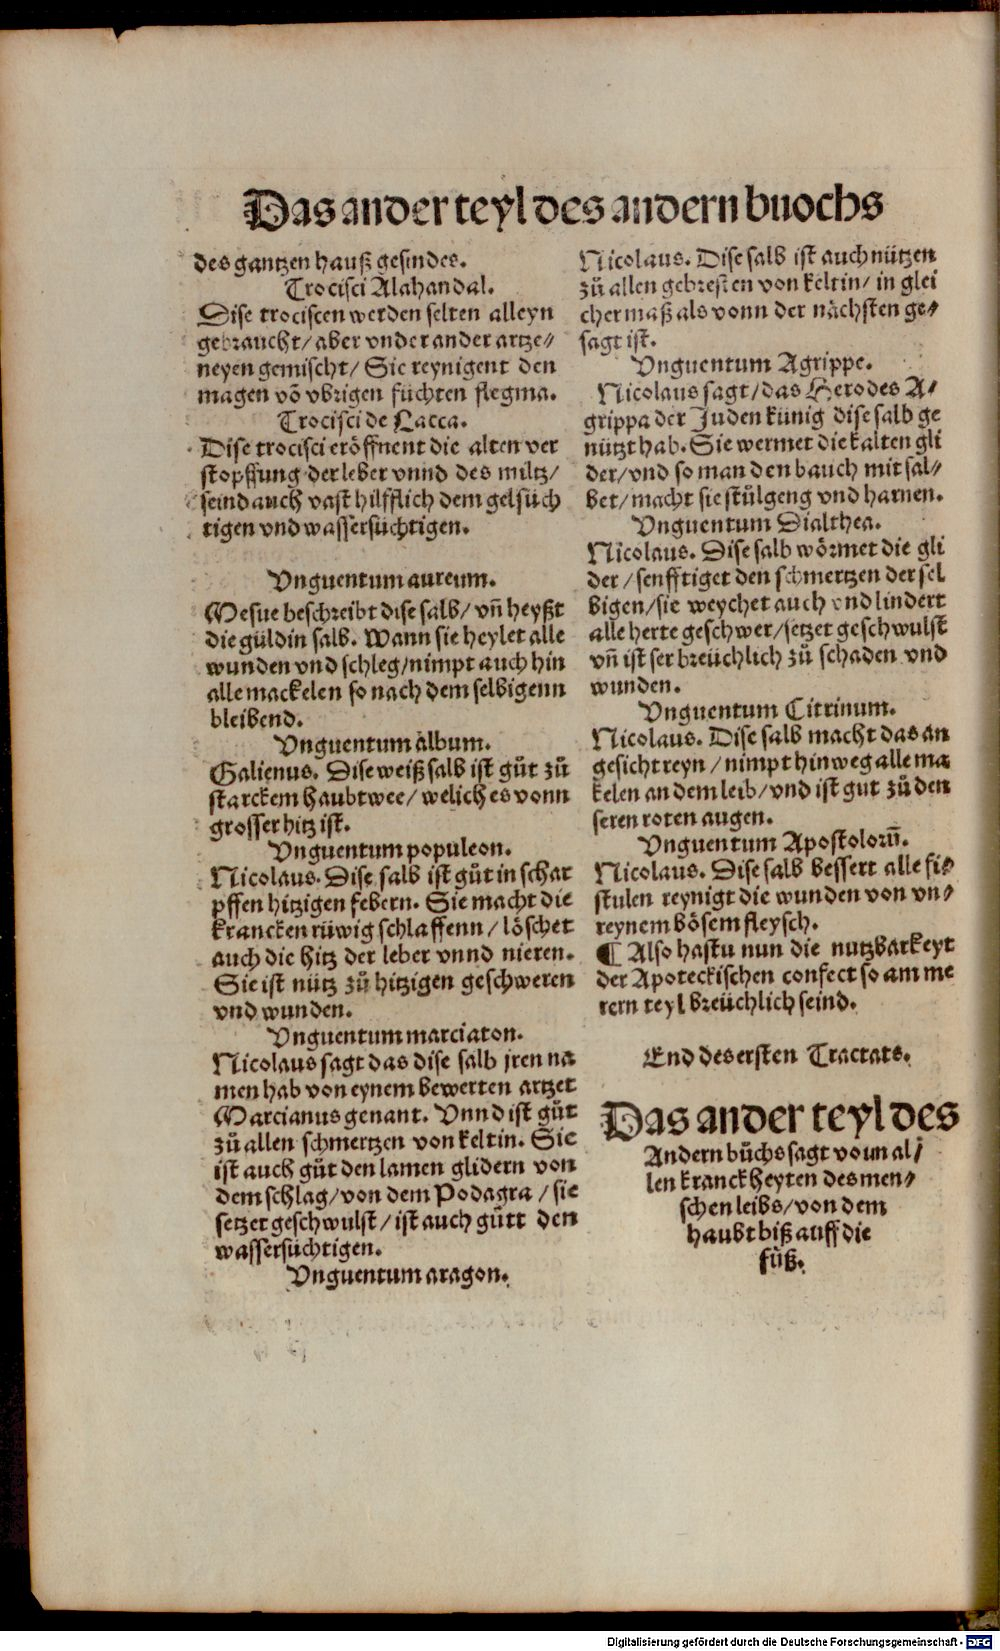 Das ander teyl des andern buochs
des gantzen hauß gesindes.
Trocisci Alahandal.
Dise trociscen werden selten alleyn
gebraucht/ aber vnder ander artze⸗
neyen gemischt/ Sie reynigent den
magen võ vbrigen füchten flegma.
Trocisci de Lacca.
Dise trocisci eröffnent die alten ver
stopffung der leber vnnd des miltz/
seind auch vast hilfflich dem gelsüch
tigen vnd wassersüchtigen.
Vnguentum aureum.
Mesue beschreibt dise salb/ vñ heyßt
die güldin salb. Wann sie heylet alle
wunden vnd schleg/ nimpt auch hin
alle mackelen so nach dem selbigenn
bleibend.
Vnguentum album.
Galienus. Dise weiß salb ist gůt zů
starckem haubtwee/ welich es vonn
grosser hitz ist.
Vnguentum populeon.
Nicolaus. Dise salb ist gůt in schar
pffen hitzigen febern. Sie macht die
krancken rüwig schlaffenn/ löschet
auch die hitz der leber vnnd nieren.
Sie ist nütz zů hitzigen geschweren
vnd wunden.
Vnguentum marciaton.
Nicolaus sagt das dise salb jren na
men hab von eynem bewerten artzet
Marcianus genant. Vnnd ist gůt
zů allen schmertzen von keltin. Sie
ist auch gůt den lamen glidern von
dem schlag/ von dem Podagra / sie
setzet geschwulst/ ist auch gůtt den
wassersüchtigen.
Vnguentum aragon.
Nicolaus. Dise salb ist auch nützen
zů allen gebresten von keltin/ in glei
cher maß als vonn der nächsten ge⸗
sagt ist.
Vnguentum Agrippe.
Nicolaus sagt/ das Herodes A⸗
grippa der Juden künig dise salb ge
nützt hab. Sie wermet die kalten gli
der/ vnd so man den bauch mit sal⸗
bet/ macht sie stülgeng vnd harnen.
Vnguentum Dialthea.
Nicolaus. Dise salb wörmet die gli
der / senfftiget den schmertzen der sel
bigen/ sie weychet auch vnd lindert
alle herte geschwer/ setzet geschwulst
vñ ist ser breüchlich zů schaden vnd
wunden.
Vnguentum Citrinum.
Nicolaus. Dise salb macht das an
gesicht reyn / nimpt hinweg alle ma
kelen an dem leib/ vnd ist gut zů den
seren roten augen.
Vnguentum Apostolorũ.
Nicolaus. Dise salb bessert alle fi⸗
stulen reynigt die wunden von vn⸗
reynem bösem fleysch.
¶ Also hastu nun die nutzbarkeyt
der Apoteckischen confect so am me
rern teyl breüchlich seind.
End des ersten Tractats.
Das ander teyl des
Andern bůchs sagt vonn al⸗
len kranckheyten des men⸗
schen leibs/ von dem
haubt biß auff die
füß.
Digitalisierung gefördert durch die Deutsche Forschungsgemeinschaft - DFG